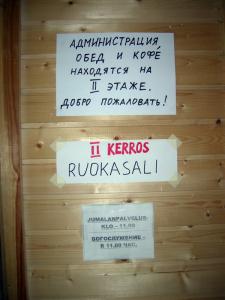 АДМИНИСТРАЦИЯ,
ОБЕД И КОФЕ
НАХОДЯТСЯ НА
II ЭТАЖЕ.
ДОБРО ПОЖАЛОВАТЬ!
II KERROS
RUOKASALI
JUMALANPALVELUS
KLO - 11.00
БОГОСЛУЖЕНИЕ -
В 11.00 ЧАС.